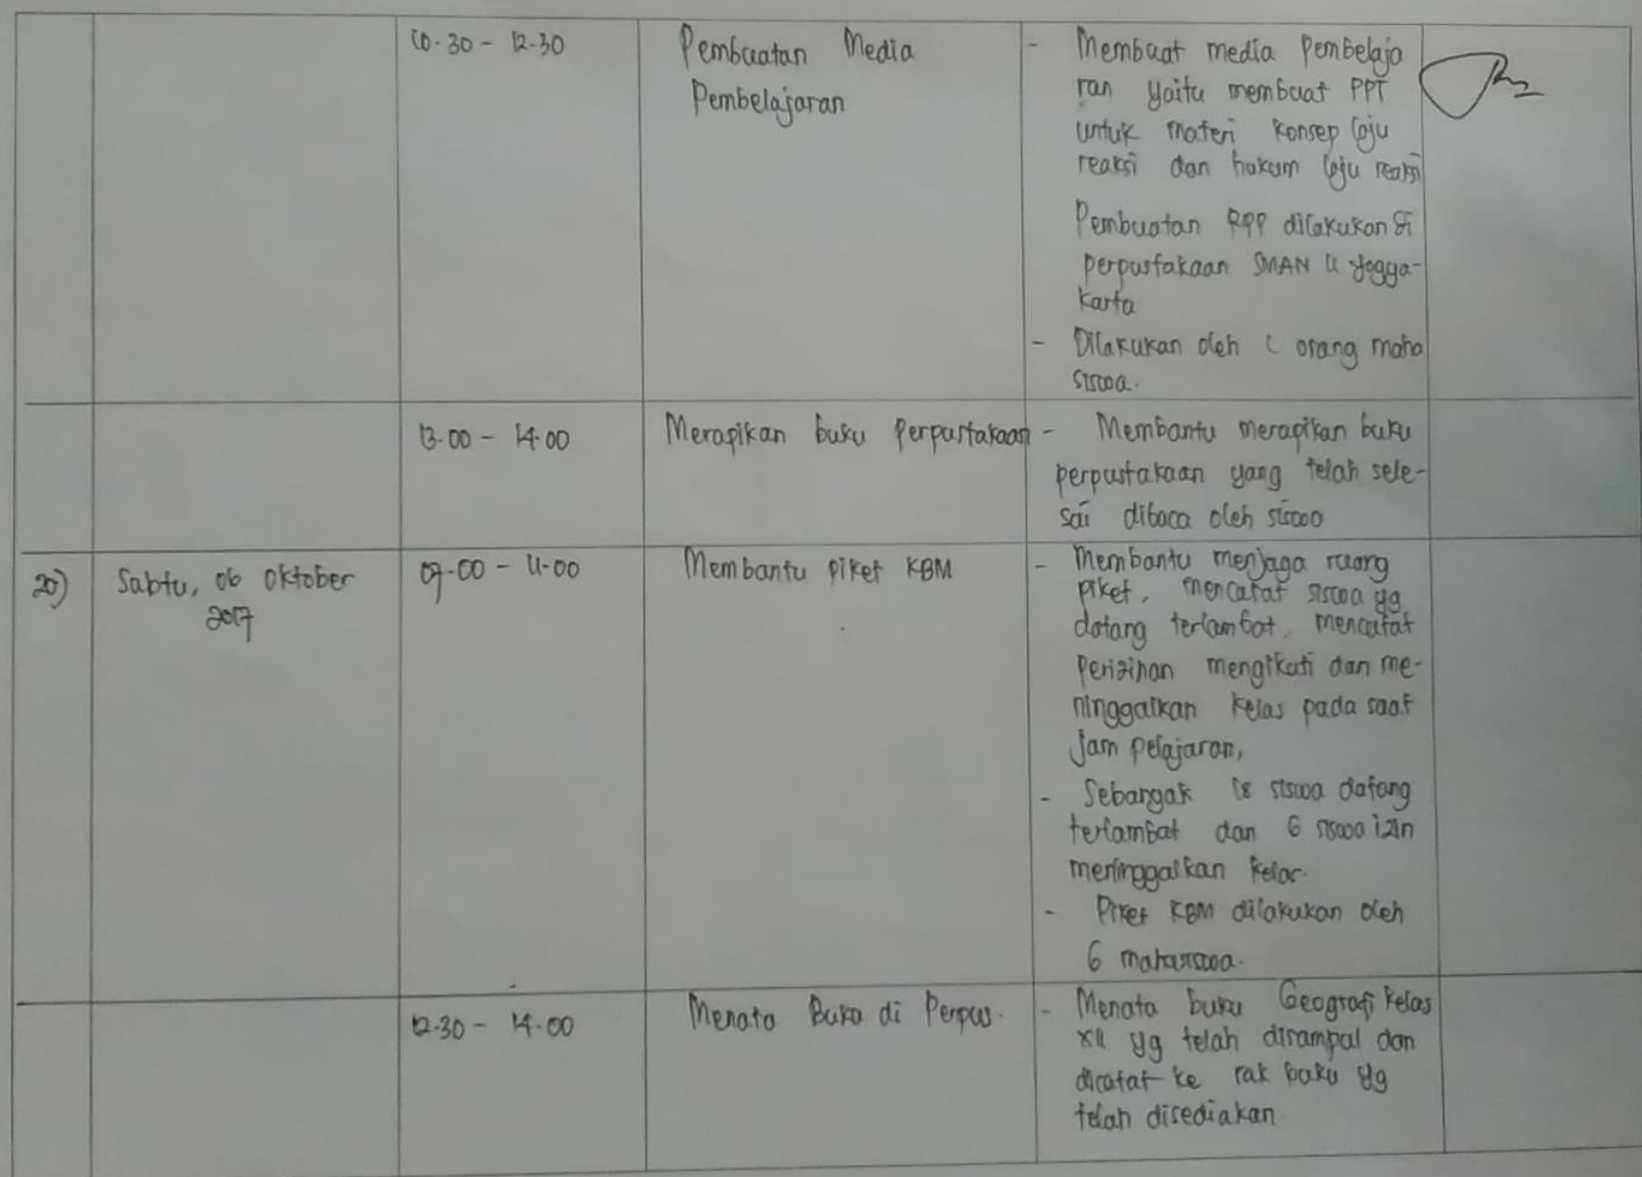 10.30 - 12.30
Pembuatan Media
Pembelajaran
- Membuat media Pembelaja
ran yaitu membuat PPT
untuk materi konsep laju
reaksi dan hukum laju reaksi
Pembuatan RPP dilakukan di
perpustakaan SMAN 11 Yogya-
karta
- Dilakukan oleh 1 orang maha
siswa.
13.00 - 14.00
Merapikan buku Perpustakaan
- Membantu merapikan buku
perpustakaan yang telah sele-
sai dibaca oleh siswa
20)
Sabtu, 06 Oktober
2017
07.00 - 11.00
Membantu piket KBM
- Membantu menjaga ruang
piket, mencatat siswa yg
datang terlambat, mencatat
Perizinan mengikuti dan me-
ninggalkan kelas pada saat
jam pelajaran,
- Sebanyak 18 siswa datang
terlambat dan 6 siswa izin
meninggalkan kelas.
- Piket KBM dilakukan oleh
6 mahasiswa.
12.30 - 14.00
Menata Buku di Perpus.
- Menata buku Geografi kelas
XII yg telah disampal dan
dicatat ke rak buku yg
telah disediakan